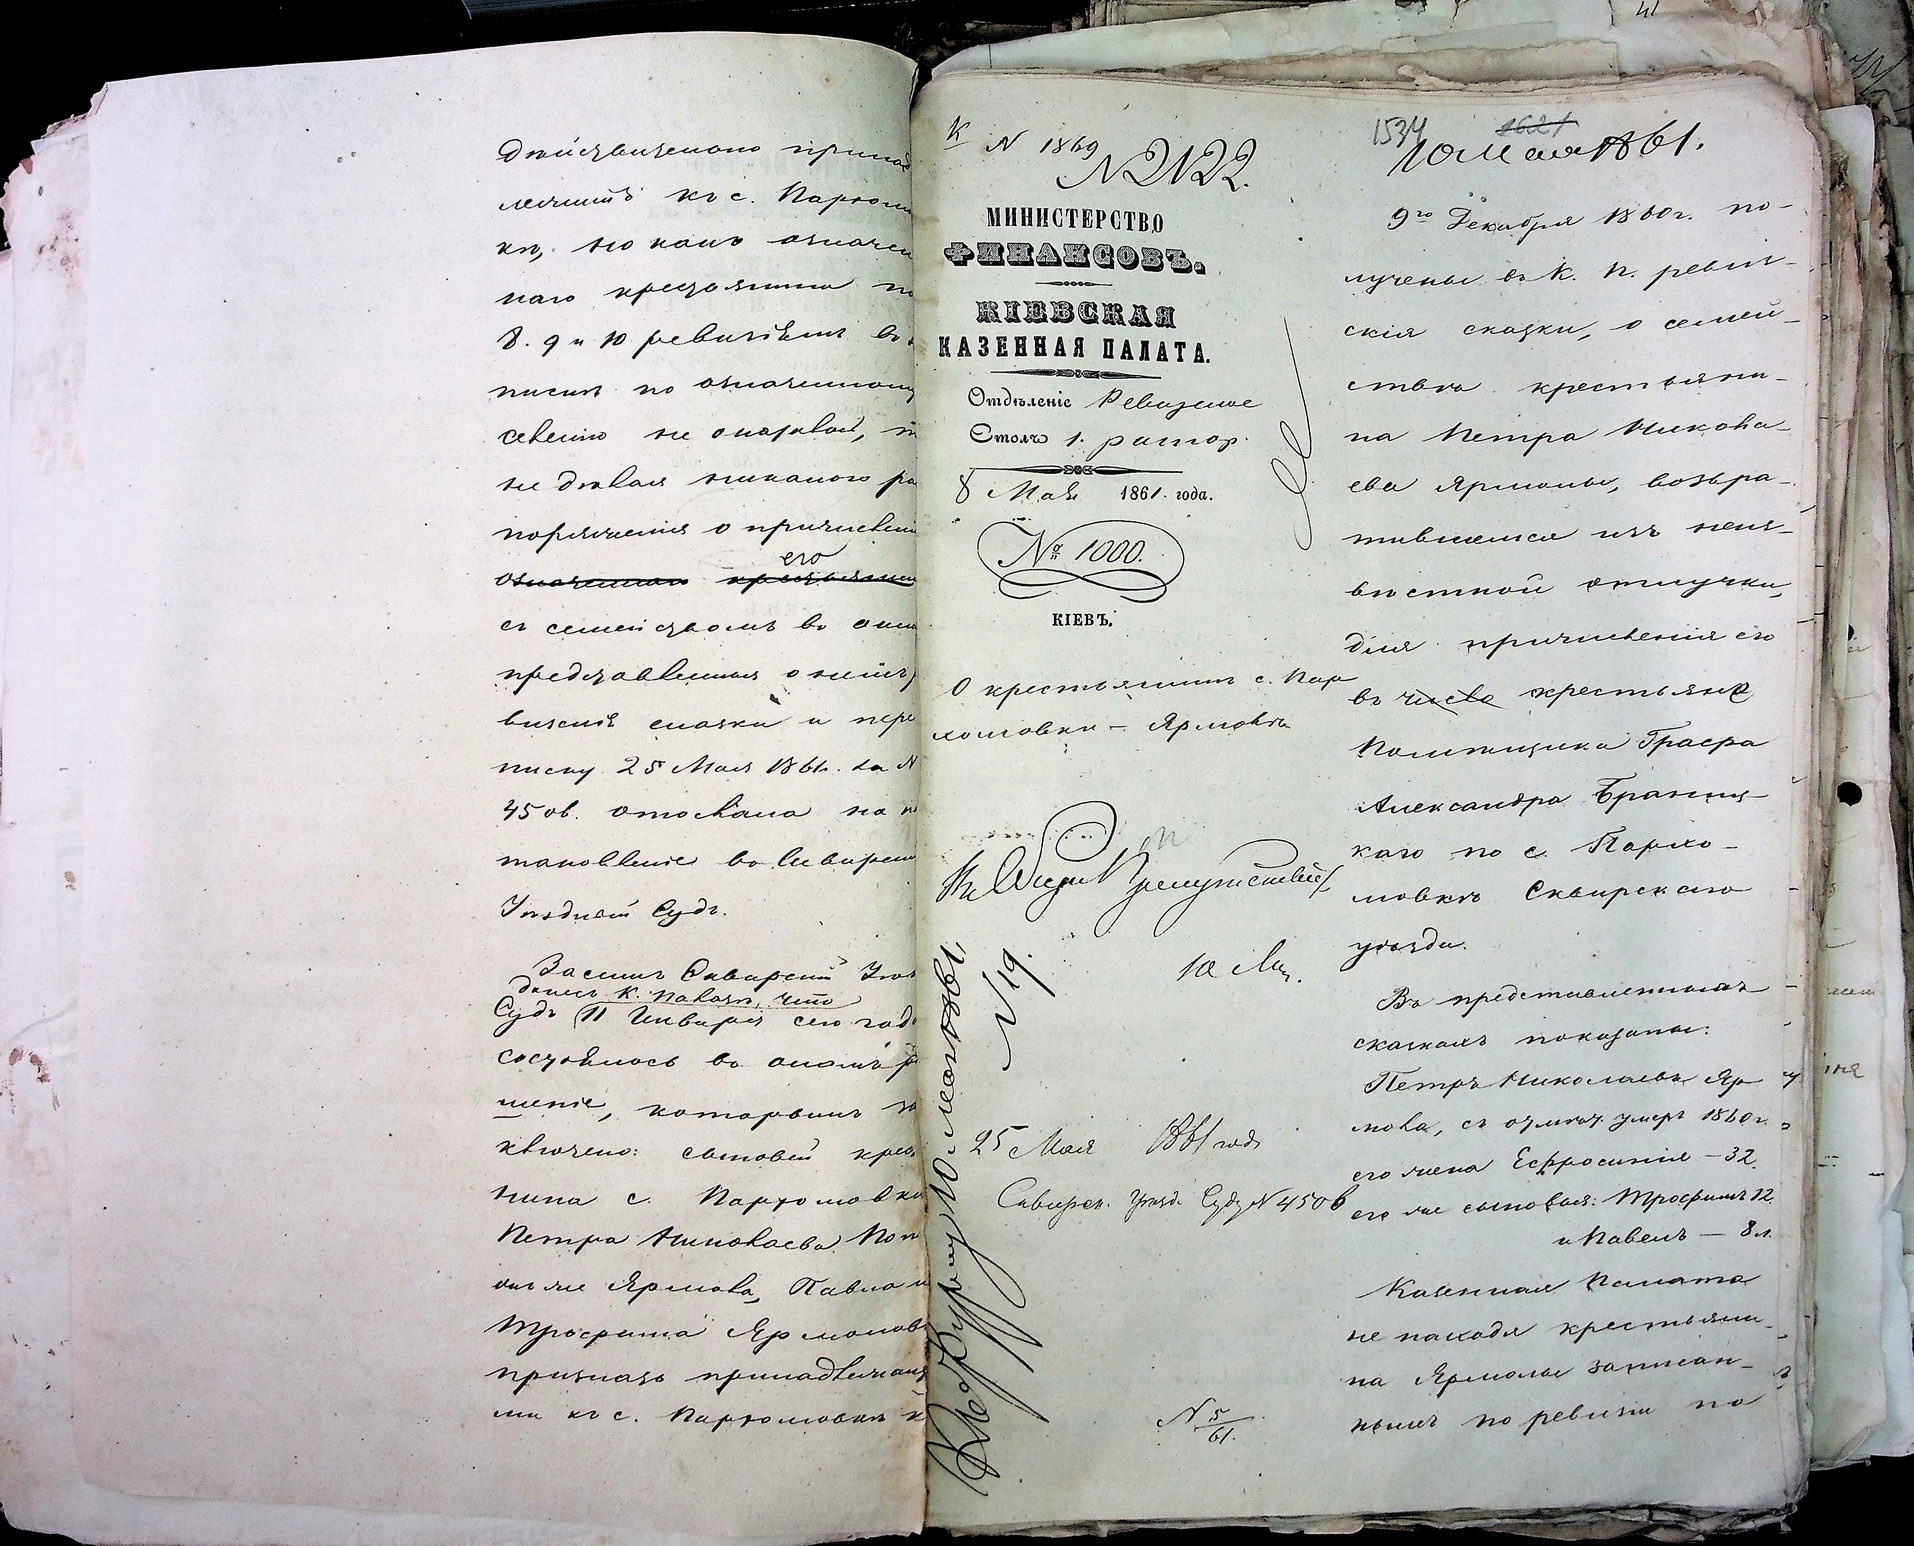 дѣйствительно принад
лежитъ къ с. Пархом
кѣ, но какъ означен
наго крестьянина по
8. 9 и 10 ревизіямъ въ
писки по означенному
селенію не оказалось, то
не дѣлая никакого ра
поряженія о причисленіи
его
означеннаго крестьянина
съ семействомъ въ окл
представленныя о немъ р
визскія сказки и пере
писку 25 Мая 1861. за N
4506. отослала на по
становленіе въ Сквирскій
Уѣздный Судъ.
Засимъ Сквирскій Уѣз
донесъ К. Палатѣ, что
Судъ 11 Января сего года
состоялось въ ономъ р
шеніе, которымъ за
ключено: сыновей крест
нина с. Пархомовки
Петра Николаева
онъ же Ярмола, Павла и
Трофима Ярмоловъ
признать принадлежащи
ми къ с. Пархомовкѣ и
К N 1869
N 2122.
МИНИСТЕРСТВО
ФИНАНСОВЪ.
КІЕВСКАЯ
КАЗЕННАЯ ПАЛАТА.
Отдѣленіе Ревизское
Столъ 1.
8 Мая 1861. года.
№ 1000.
КІЕВЪ.
О крестьянинѣ с. Пар
хомовки – Ярмолѣ
10 Мая
N 19.
25 Мая 1861 года
Сквирск. Уѣзд. Суду N 4506
N 5/61.
1534
1621
10 Мая 1861.
9го Декабря 1860 г. по-
лучены въ К. П. ревиз-
скія сказки, о семей-
ствѣ крестьяни-
на Петра Никола-
ева Ярмолы, возвра-
тившемся изъ неиз-
вѣстной отлучки,
для причисленія его
въ число крестьянъ
Помѣщика Графа
Александра Браниц-
каго по с. Пархо-
мовкѣ Сквирскаго
уѣзда.
Въ представленныхъ
сказкахъ показаны:
Петръ Николаевъ Яр
мола, съ отлуч. умеръ 1860 г.
его жена Ефросинія – 32.
его же сыновья: Трофимъ 12
и Павелъ – 8 л.
Казенная Палата
не находя крестьяни-
на Ярмолы записан-
нымъ по ревизіи по